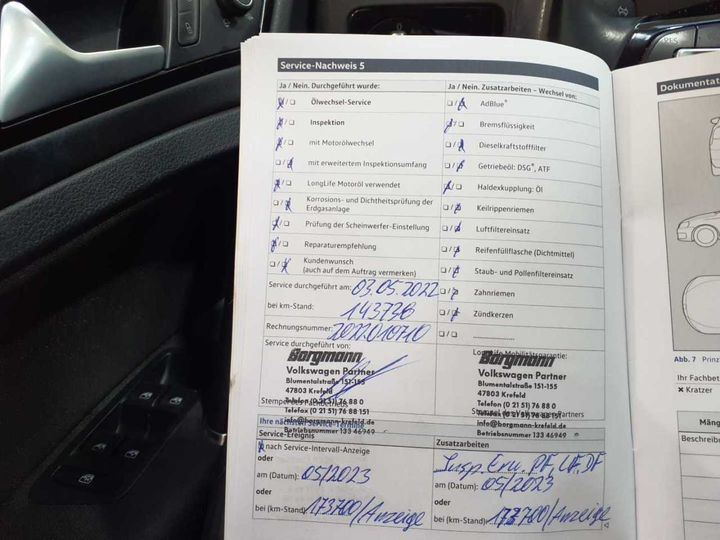 Service-Nachweis 5
Ja / Nein. Durchgeführt wurde:
Ölwechsel-Service
Inspektion
mit Motorölwechsel
mit erweitertem Inspektionsumfang
LongLife Motoröl verwendet
Korrosions- und Dichtheitsprüfung der
Erdgasanlage
Prüfung der Scheinwerfer-Einstellung
Reparaturempfehlung
Kundenwunsch
(auch auf dem Auftrag vermerken)
Service durchgeführt am: 03.05.2022
bei km-Stand: 143736
Rechnungsnummer: 2022010710
Service durchgeführt von:
Borgmann
Volkswagen Partner
Blumentalstraße 151-155
47803 Krefeld
Telefon (0 21 51) 76 88 0
Telefax (0 21 51) 76 88 151
info@borgmann-krefeld.de
Betriebsnummer 133 46949
Ja / Nein. Zusatzarbeiten – Wechsel von:
AdBlue®
Bremsflüssigkeit
Dieselkraftstofffilter
Getriebeöl: DSG®, ATF
Haldexkupplung: Öl
Keilrippenriemen
Luftfiltereinsatz
Reifenfüllflasche (Dichtmittel)
Staub- und Pollenfiltereinsatz
Zahnriemen
Zündkerzen
LongLife Mobilitätsgarantie:
Borgmann
Volkswagen Partner
Blumentalstraße 151-155
47803 Krefeld
Telefon (0 21 51) 76 88 0
Telefax (0 21 51) 76 88 151
info@borgmann-krefeld.de
Betriebsnummer 133 46949
Ihre nächsten Service-Termine
Service-Ereignis
nach Service-Intervall-Anzeige
oder
am (Datum): 05/2023
oder
bei (km-Stand): 173700/Anzeige
Zusatzarbeiten
Insp. Erw. PF, LF, DF
am (Datum): 05/2023
oder
bei (km-Stand): 173700/Anzeige
Dokumentat
Abb. 7 Prinz
Ihr Fachbet
× Kratzer
Mäng
Beschreibe